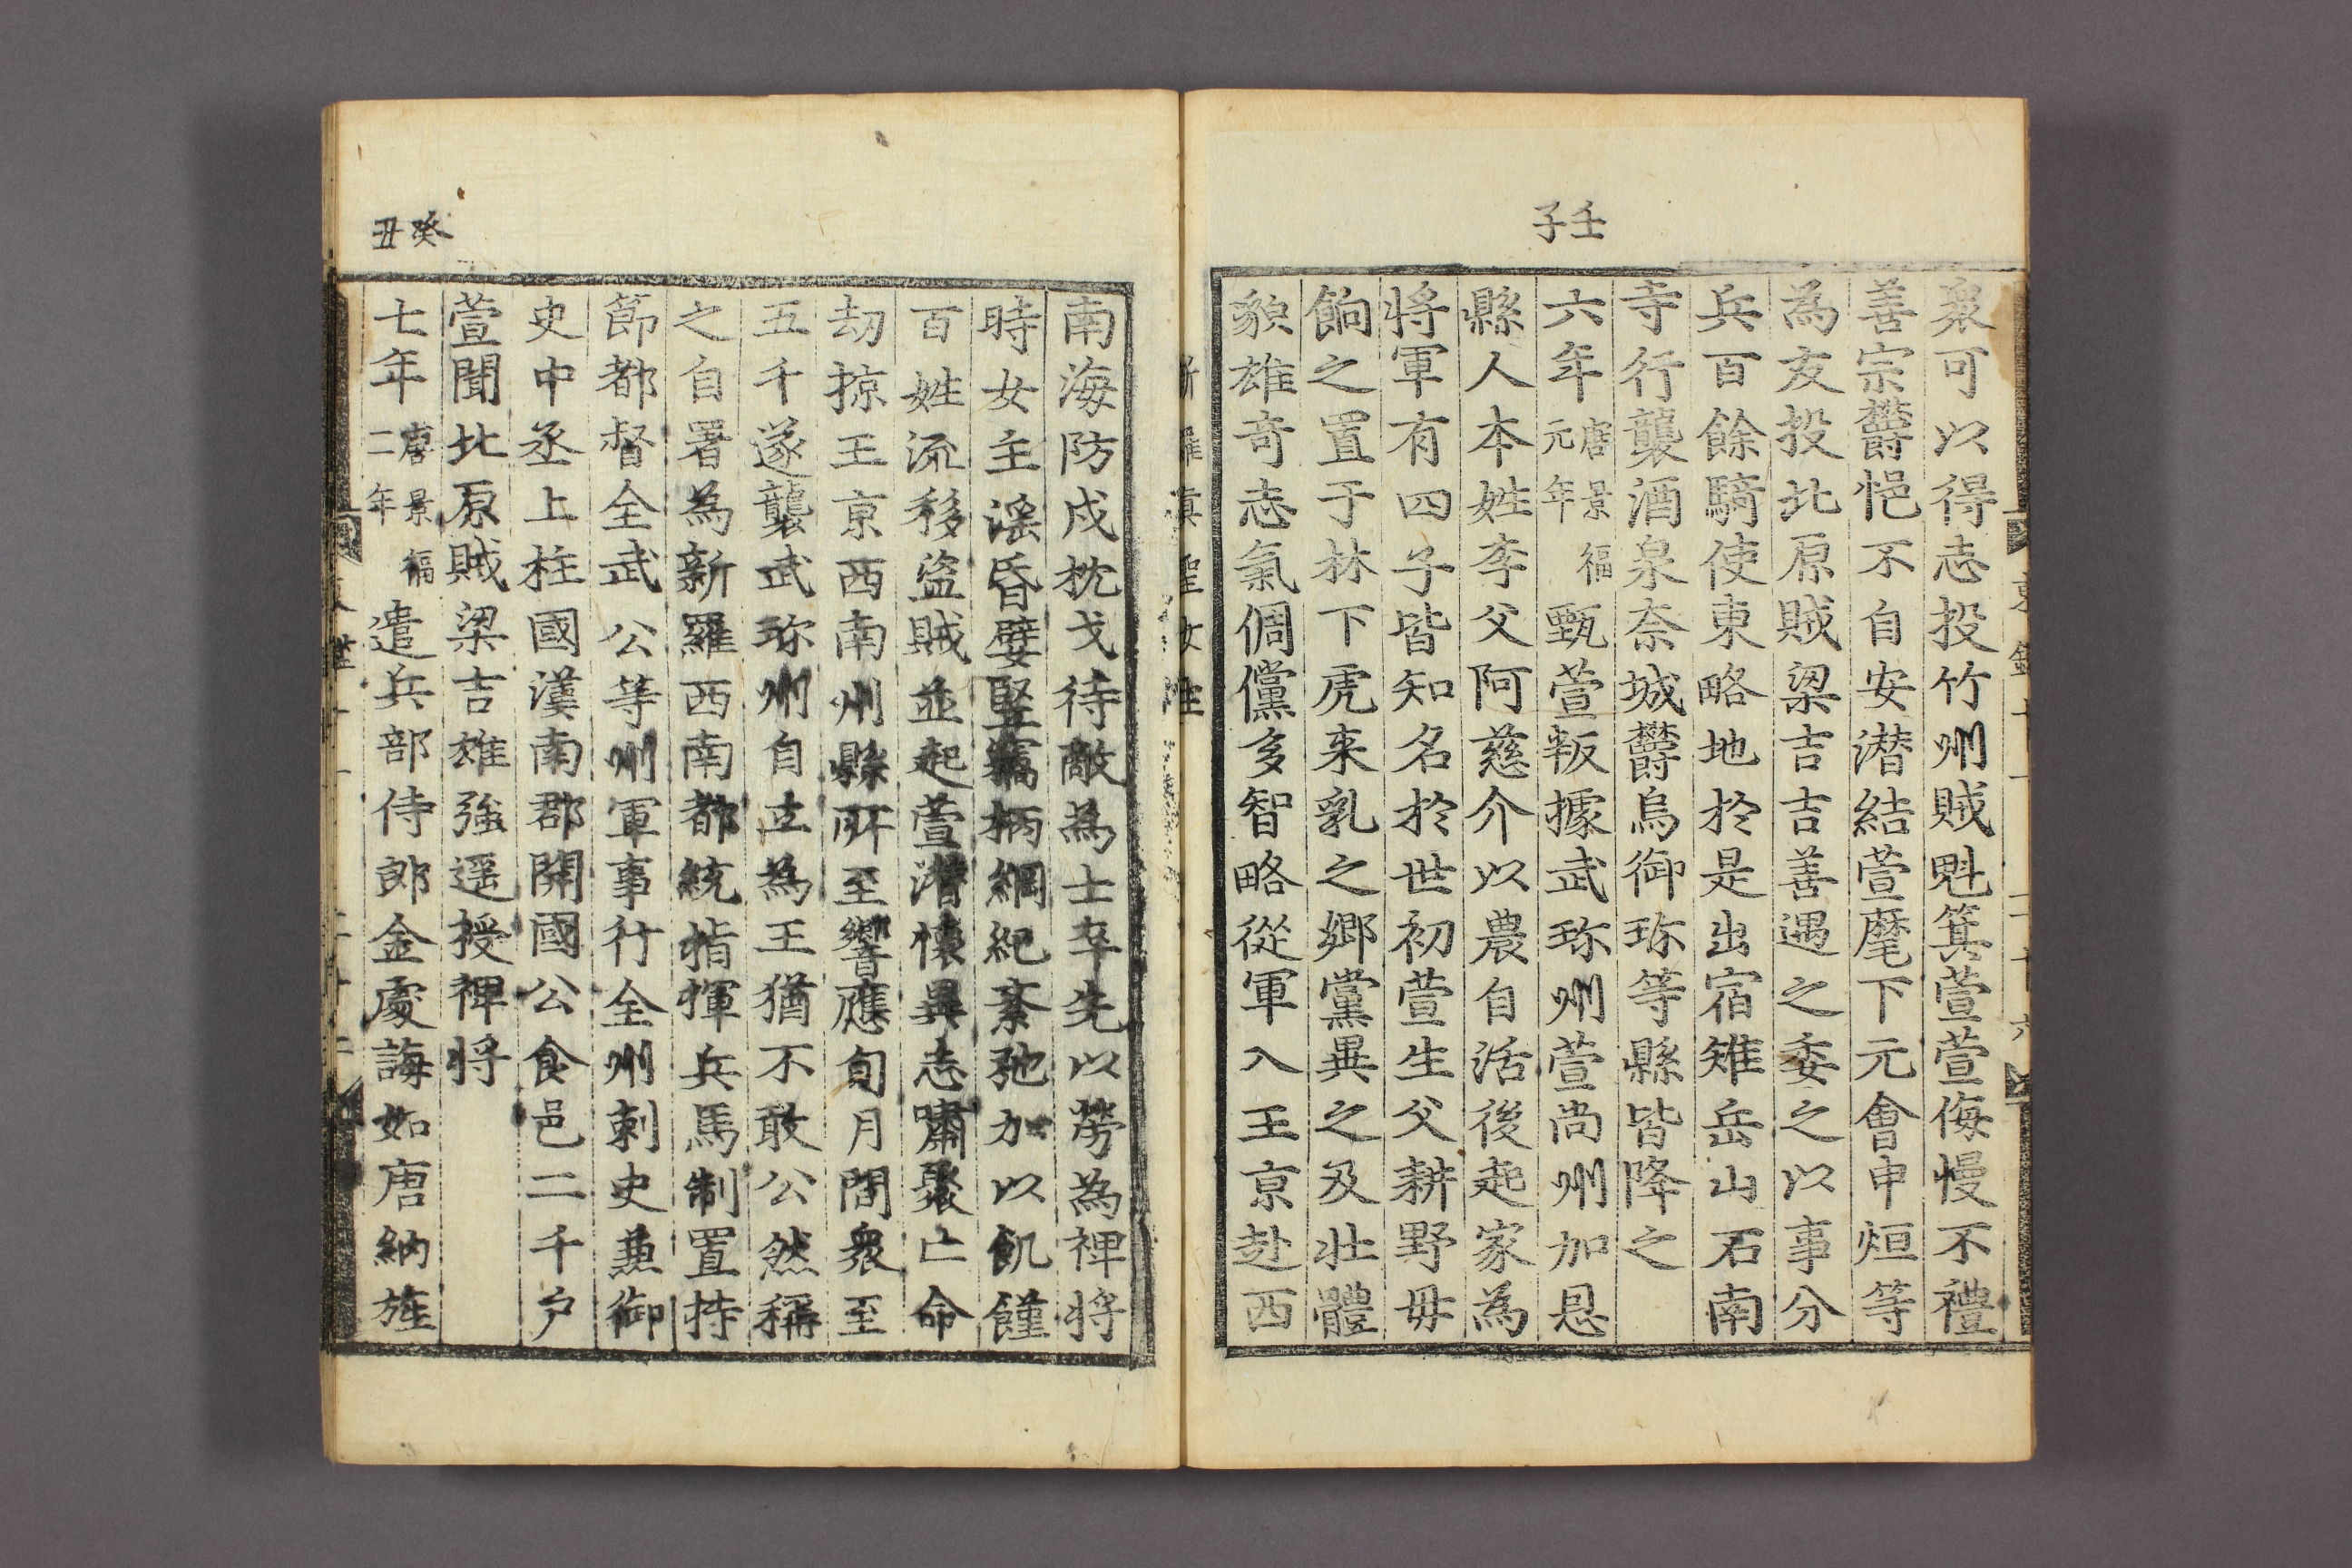 壬子
衆可以得志投竹州賊魁箕萱萱侮慢不禮
善宗欝悒不自安潜結萱麾下元會申烜等
為友投北原賊梁吉吉善遇之委之以事分
兵百餘騎使東略地於是出宿雉岳山石南
寺行襲酒泉奈城欝烏御珎等縣皆降之
六年唐景福元年甄萱叛據武珎州萱尚州加恩
縣人本姓李父阿慈介以農自活後起家為
將軍有四子皆知名於世初萱生父耕野毋
餉之置于林下虎来乳之鄉黨異之及壮體
貌雄竒志氣倜儻多智略從軍入王京赴西
新羅真聖女主
癸丑
南海防戍枕戈待敵為士卒先以勞為裨將
時女主淫昏嬖竪竊柄綱紀紊弛加以飢饉
百姓流移盜賊並起萱潜懷異志嘯聚亡命
劫掠王京西南州縣所至響應旬月間衆至
五千遂襲武珎州自立為王猶不敢公然稱
之自署為新羅西南都統指揮兵馬制置持
節都督全武公等州軍事行全州刺史兼御
史中丞上柱國漢南郡開國公食邑二千户
萱聞北原賊梁吉雄強遥授裨将
七年唐景福二年遣兵部侍郎金處誨如唐納旌